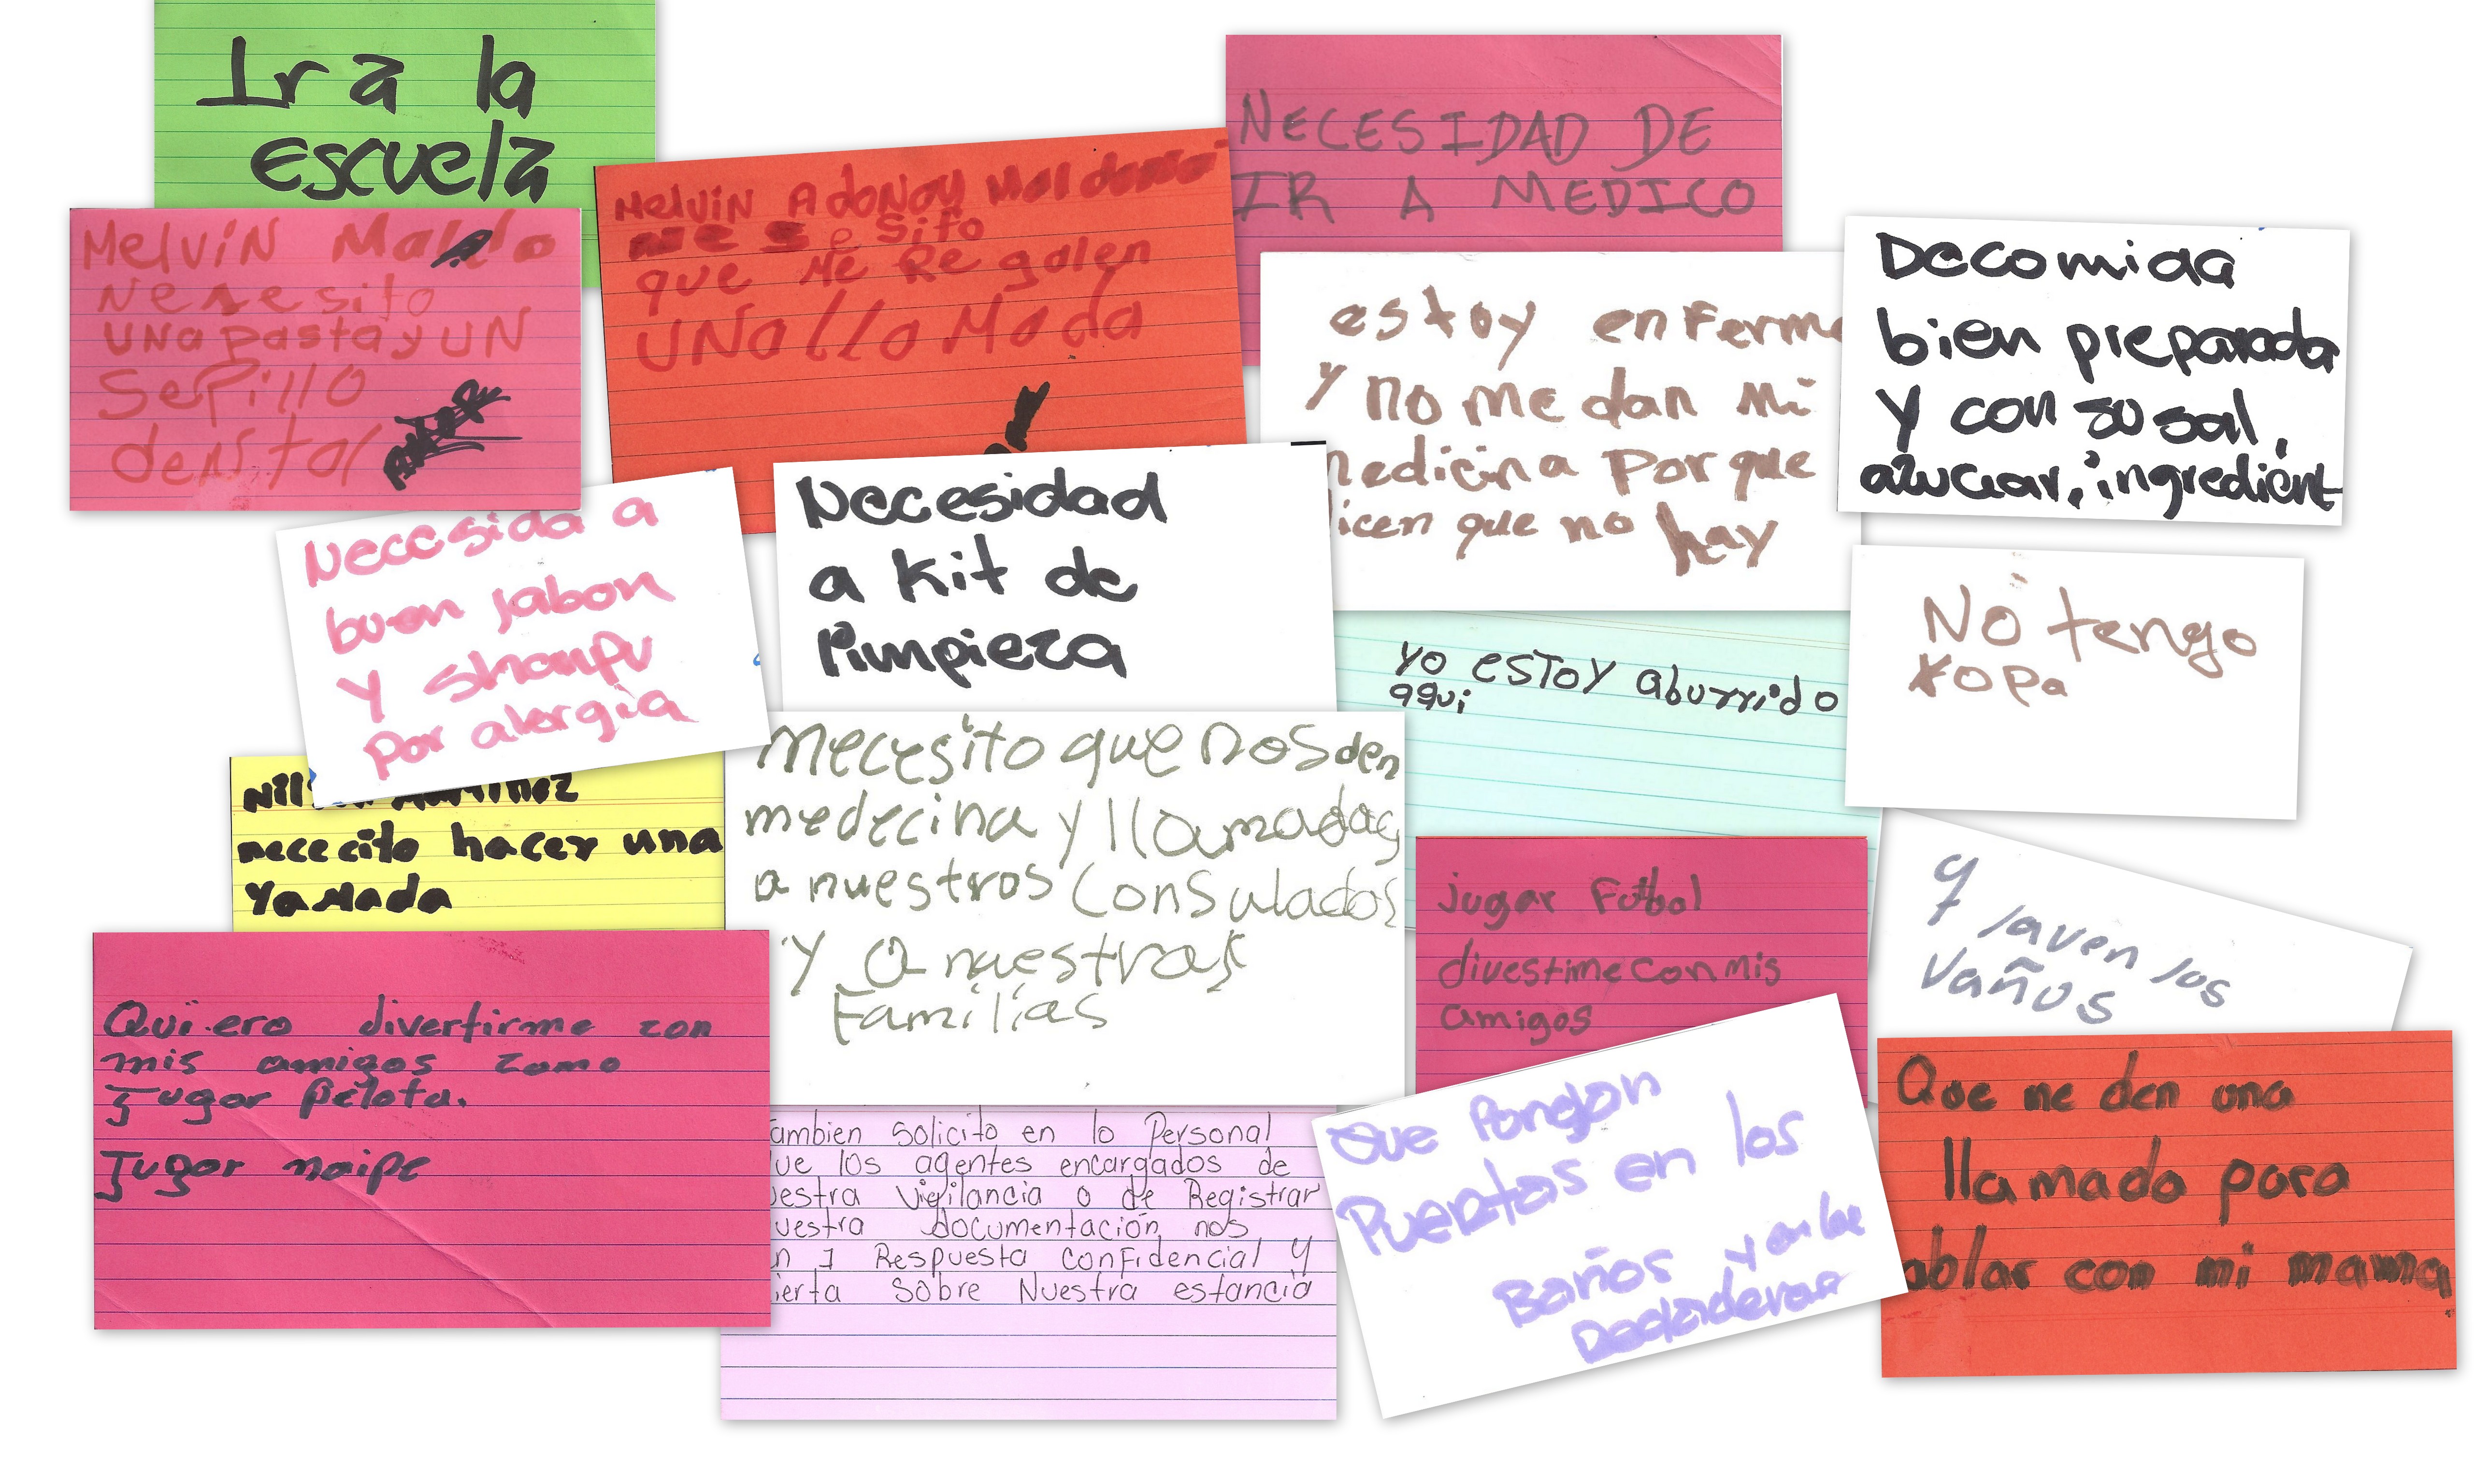 Ir a la
escuela
Melvin Maldo
Nesesito
una pasta y un
Sepillo
dental
Melvin Adonay Maldona
nesesito
que me regalen
una llamada
NECESIDAD DE
IR A MEDICO
estoy enferm
y no me dan mi
medicina Por que
icen que no hay
De comida
bien preparada
y con su sal,
azucar, ingredient
Necesida a
buen jabon
y shanpu
por alergia
Necesidad
a Kit de
limpieza
yo esToy aburrido
aqui
No tengo
ropa
Martinez
nececito hacer una
yamada
necesito que nos den
medecina y llamadas
a nuestros consulados
y a nuestras
Familias
jugar Futbol
divestime con mis
amigos
y laven los
vaños
Quiero divertirme con
mis amigos como
Jugar Pelota.
Jugar naipe
ambien solicito en lo Personal
ue los agentes encargados de
uestra vigilancia o de Registrar
uestra documentación nos
n 1 Respuesta confidencial y
ierta sobre Nuestra estancia
Que Pongan
Puertas en los
Baños y en los
Que me den una
llamada para
ablar con mi mama